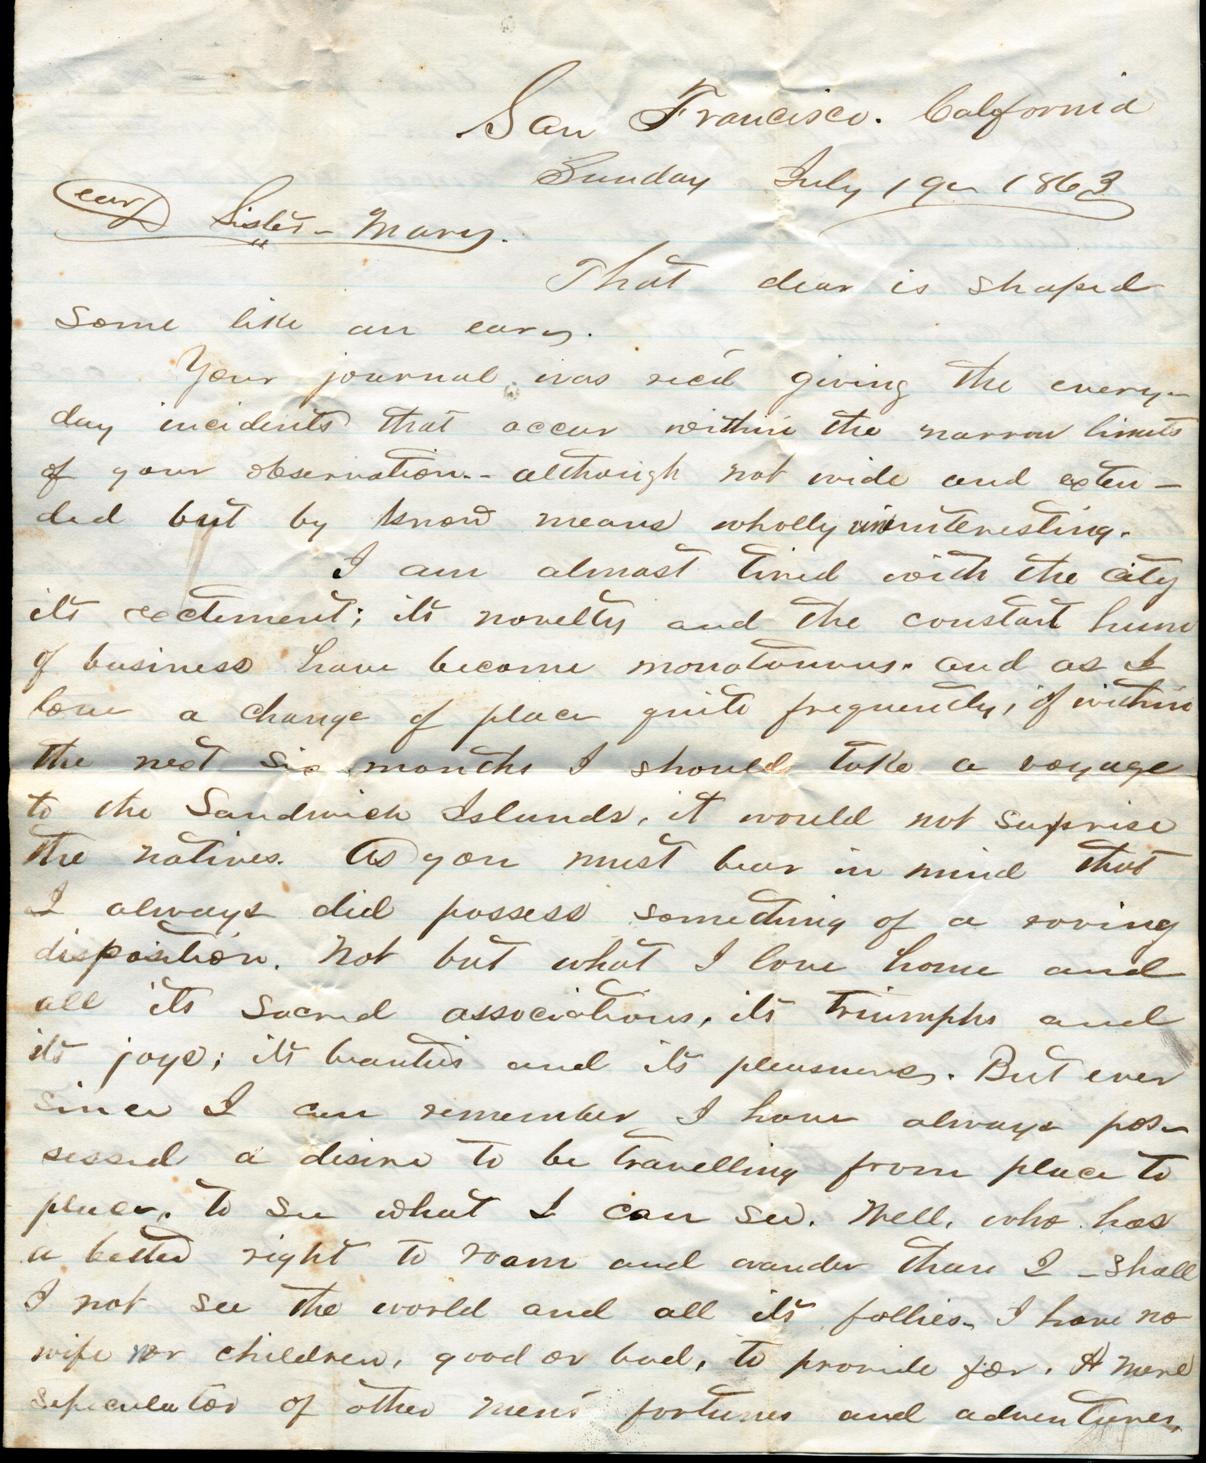 San Francisco. California
Sunday July 19th 1863
Dear Sister Mary.
That dear is shaped
some like an ear.
Your journal was rec'd giving the every-
day incidents that occur within the narrow limits
of your observation - although not wide and exten-
ded but by know means wholly uninteresting.
I am almost tired with the city
its excitement; its novelty and the constant hum
of business have become monotonous. and as I
love a change of place quite frequently, if within
the next six months I should take a voyage
to the Sandwich Islands, it would not surprise
the natives. As you must bear in mind that
I always did possess something of a roving
disposition. Not but what I love home and
all its sacred associations, its triumphs and
its joys; its beauties and its pleasures. But ever
since I can remember I have always pos-
sessed a desire to be travelling from place to
place. to see what I can see. Well, who has
a better right to roam and wander than I - shall
I not see the world and all its follies. I have no
wife nor children, good or bad, to provide for. A mere
speculator of other men's fortunes and adventures,